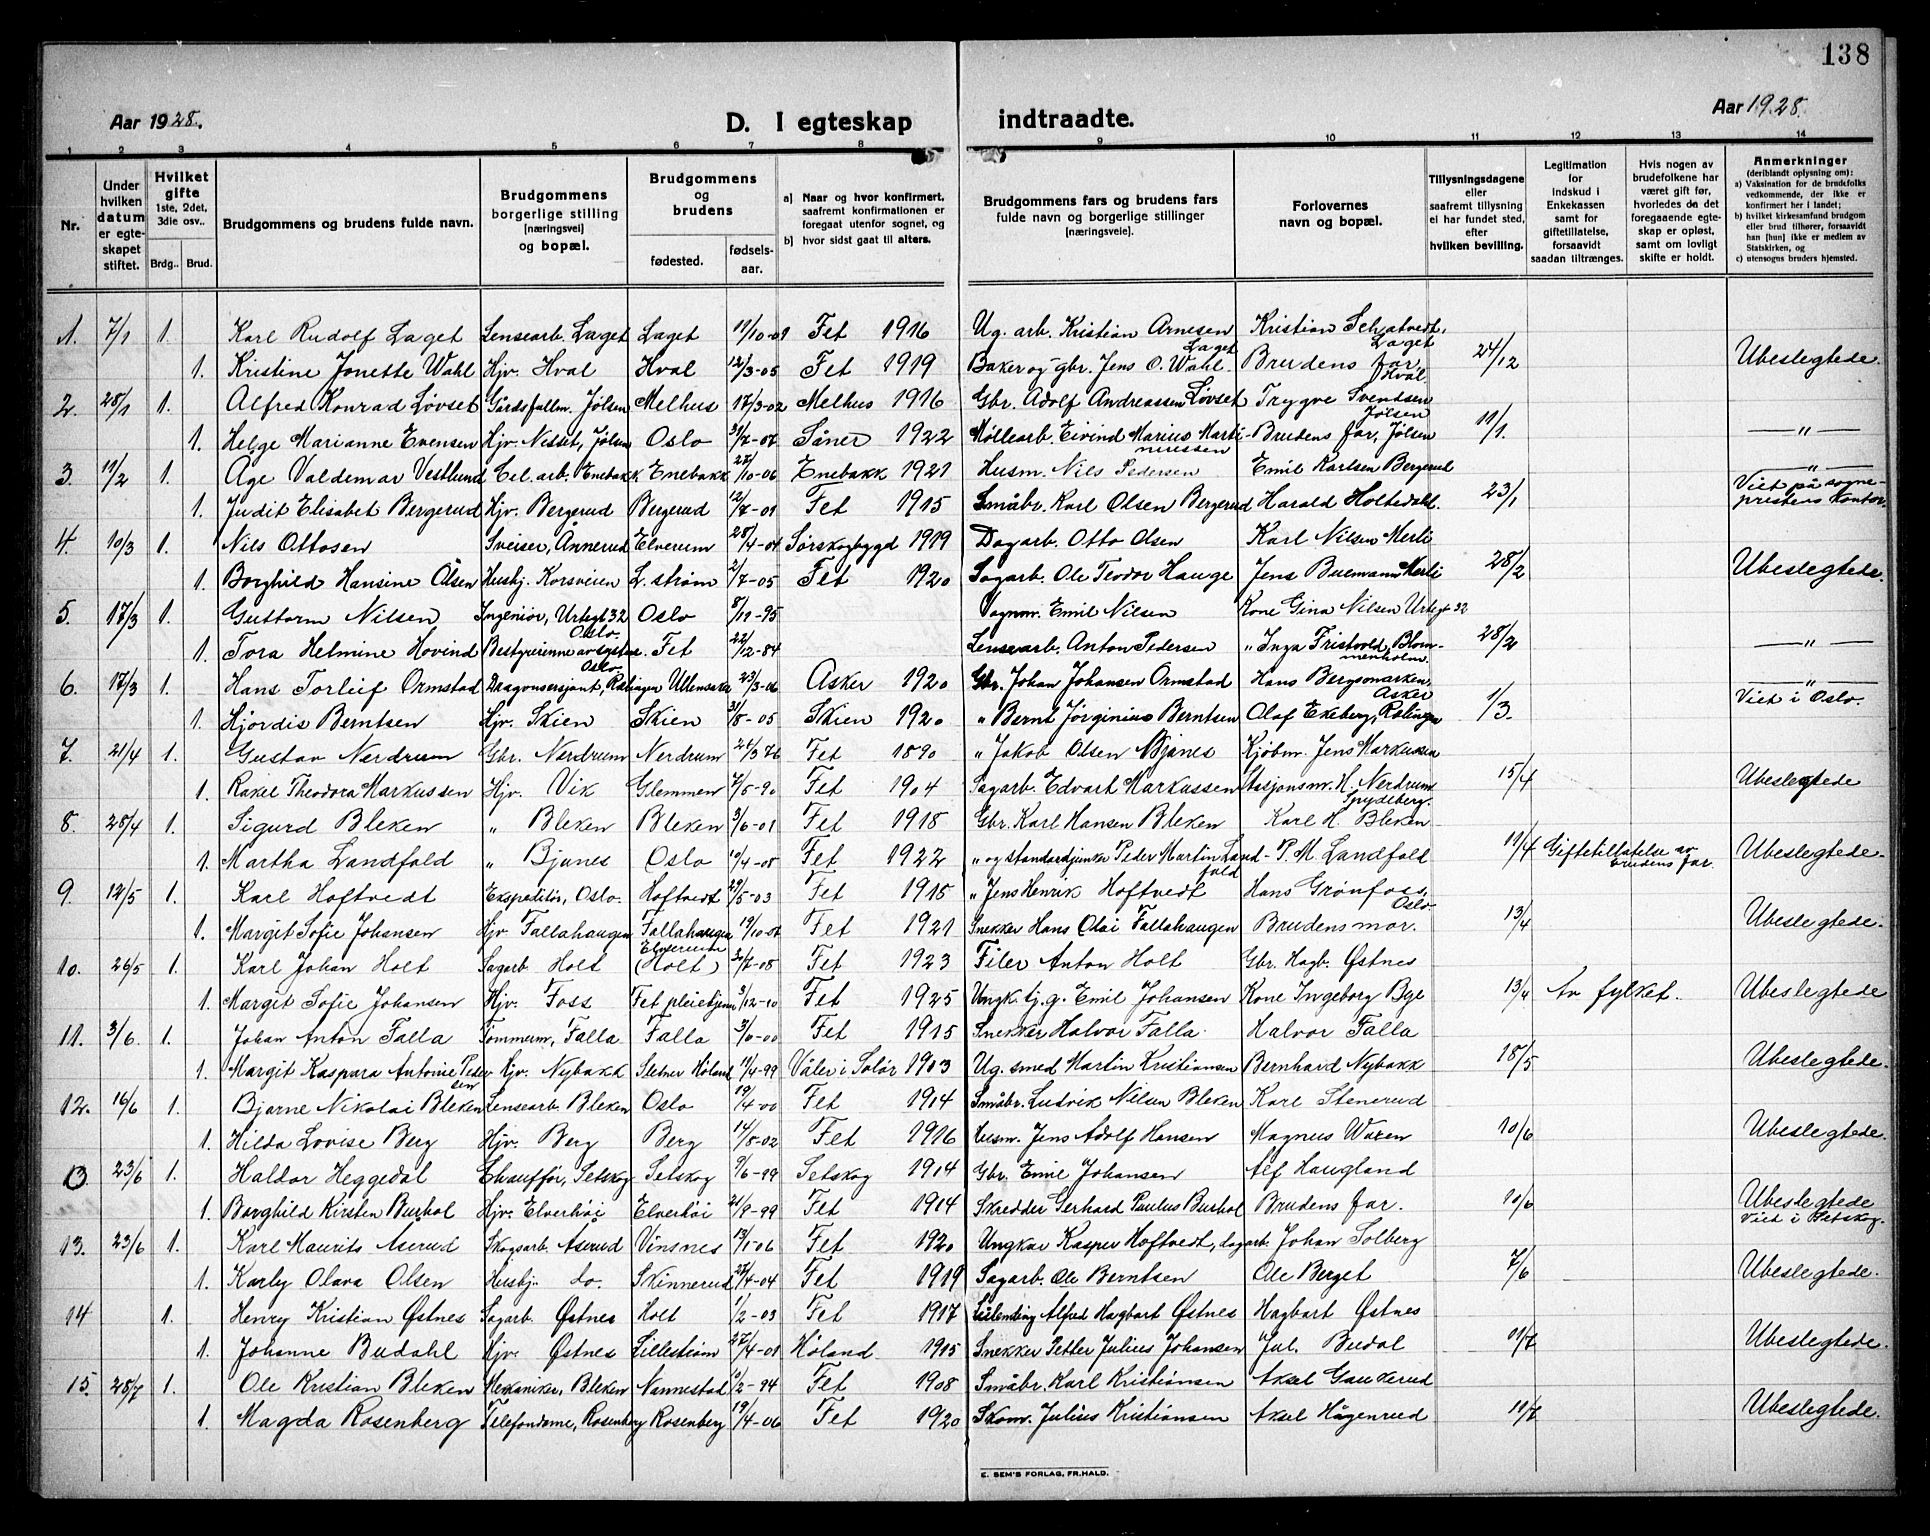 138
Aar 1928.
D. I egteskap indtraadte.
Aar 1928.
1 2 3 4 5 6 7 8 9 10 11 12 13 14
Nr.
Under hvilken datum er egteskapet stiftet.
Hvilket gifte 1ste, 2det, 3die osv..
Brdg.. Brud.
Brudgommens og brudens fulde navn.
Brudgommens borgerlige stilling [næringsvei] og bopæl.
Brudgommens og brudens
fødested. fødsels-aar.
a) Naar og hvor konfirmert, saafremt konfirmationen er foregaat utenfor sognet, og
b) hvor sidst gaat til alters.
Brudgommens fars og brudens fars fulde navn og borgerlige stillinger (næringsveie).
Forlovernes navn og bopæl.
Tillysningsdagene eller saafremt tillysning ei har fundet sted, efter hvilken bevilling.
Legitimation for indskud i Enkekassen samt for giftetillatelse, forsaavidt saadan tiltrænges.
Hvis nogen av brudefolkene har været gift før, hvorledes da det foregaaende egteskap er opløst, samt om lovligt skifte er holdt.
Anmerkninger (deriblandt oplysning om):
a) Vaksination for de brudefolks vedkommende, der ikke er konfirmert her i landet;
b) hvilket kirkesamfund brudgom eller brud tilhører, forsaavidt han [hun] ikke er medlem av Statskirken, og
c) utensogns bruders hjemsted.
1. 7/1 1. Karl Rudolf Laget Lensearb. Laget Laget 11/10-01 Fet 1916 Ug. arb. Kristian Arnesen Laget Kristian Schatvedt, Laget
1. Kristine Jonette Wahl Hjv. Hval Hval 12/3-05 Fet 1919 Baker og gbr. Jens O. Wahl Brudens far, Hval 24/12 Ubeslegtede.
2. 28/1 1. Alfred Konrad Løvset Gårdsfullm. Jølsen Melhus 17/3-02 Melhus 1916 Gbr. Adolf Andreassen Løvset Trygve Svendsen Jølsen
1. Helge Marianne Evensen Hjv. Nisset, Jølsen Oslo 31/7-07 Såner 1922 Møllearb. Eivind Marius Martiniussen Brudens far, Jølsen 11/1. — " —
3. 11/2 1. Åge Valdemar Vestlund Cel. arb. Enebakk Enebakk 27/10-06 Enebakk 1921 Husm. Nils Pedersen Emil Karlsen Bergerud — " —
1. Judit Elisabet Bergerud Hjv. Bergerud Bergerud 12/7-01 Fet 1915 Småbr. Karl Olsen Bergerud Harald Holtedahl. 23/1 Viet på sogneprestens kontor.
4. 10/3 1. Nils Ottosen Sveiser, Annerud Elverum 28/4-04 Sørskogbygd 1919 Dagarb. Otto Olsen Karl Nilsen Merli
1. Borghild Hansine Olsen Husbj. Korsveien L.strøm 2/7-05 Fet 1920 Sagarb. Ole Teodor Hauge Jens Buemann Merli 28/2 Ubeslegtede.
5. 17/3 1. Guttorm Nilsen Ingeniør, Urtegt 32 Oslo. Oslo 8/11-95 Vognm. Emil Nilsen Kone Gina Nilsen Urtegt 32
1. Tora Helmine Hovind Bestyrerinne av systue. Oslo. Fet 22/12-84 Lensearb. Anton Pedersen " Inga Fristvold, Blommenholm. 28/2 — " —
6. 17/3 1. Hans Torleif Ormstad Dragonsersjant, Rælingen Ullensaker 23/3-06 Asker 1920 Gbr. Johan Johansen Ormstad Hans Bergsmarken, Asker — " —
1. Hjørdis Berntsen Hjv. Skien Skien 31/8-05 Skien 1920 " Bernt Jørginius Berntsen Olaf Ekeberg, Rælingen 1/3. Viet i Oslo.
7. 21/4 1. Gustav Nerdrum Gbr. Nerdrum Nerdrum 24/3 76 Fet 1890 " Jakob Olsen Bjanes Kjøbm. Jens Markussen
1. Rakel Theodora Markussen Hjv. Vik Glemmen 7/5-90 Fet 1904 Sagarb. Edvart Markussen Stasjonsm. H. Nerdrum Spydeberg. 15/4 Ubeslegtede
8. 28/4 1. Sigurd Bleken " Bleken Bleken 3/6-01 Fet 1918 Gbr. Karl Hansen Bleken Karl H. Bleken
1. Martha Landfald " Bjanes Oslo 10/4-08 Fet 1922 " og standardjunker Peder Martin Landfald P. M. Landfald 11/4 Giftetillatelse av Brudens far. Ubeslegtede.
9. 12/5 1. Karl Hoftvedt Ekspeditør, Oslo. Hoftvedt 29/5-03 Fet 1915 " Jens Henrik Hoftvedt Hans Grønfoss, Oslo.
1. Margit Sofie Johansen Hjv Fallahaugen Fallahaugen 19/10-06 Fet 1921 Snekker Hans Olai Fallahaugen Brudens mor. 13/4 Ubeslegtede.
10. 26/5 1. Karl Johan Holt Sagarb. Holt Elverum (Holt) 30/7-08 Fet 1923 Filer Anton Holt Gbr. Hagb. Østnes
1. Margit Sofie Johansen Hjv. Foss Fet pleiehjem 3/12-10 Fet 1925 Ungk. tj. g. Emil Johansen Kone Ingeborg Bye 13/4 Av fylket. Ubeslegtede
11. 3/6. 1. Johan Anton Falla Tømmerm, Falla Falla 3/6-00 Fet 1915 Snekker Halvor Falla. Halvor Falla
1. Margit Kaspara Antonie Pedersen Hjv. Nybakk Setner Høland 11/4-99 Våler i Solør 1913 Ug. smed Martin Kristiansen Bernhard Nybakk 18/5 Ubeslegtede.
12. 16/6 1. Bjarne Nikolai Bleken Lensearb. Bleken Oslo 19/4-00 Fet 1914 Småbr. Ludvik Nilsen Bleken Karl Stenerud
1. Hilda Lovise Berg Hjv. Berg Berg 14/8-02 Fet 1916 Husm. Jens Adolf Hansen Magnus Waren 10/6 Ubeslegtede.
23/6 1. Haldor Heggedal Chauffør, Setskog Setskog 9/6-99 Setskog 1914 Gbr. Emil Johansen Alf Haugland
1. Borghild Kirsten Burhol Hjv. Elverhøi Elverhøi 21/9-99 Fet 1914 Skredder Gerhard Paulus Burhol Brudens far. 10/6 Ubeslegtede Viet i Setskog.
13. 23/6 1. Karl Maurits Aserud Skogsarb. Aserud Vinsnes 13/1-06 Fet 1920 Ungkar Kasper Hoftvedt, dagarb. Johan Solberg
1. Karly Olava Olsen Husbj. do. Skinnerud 27/4-04 Fet 1919 Sagarb. Ole Berntsen Ole Berget 7/6 Ubeslegtede.
14 1. Henry Kristian Østnes Sagarb. Østnes Holt 1/2-03 Fet 1917 Alfred Hagbart Østnes Hagbart Østnes
1. Johanne Budahl Hjv. Østnes Lillestrøm 27/4-01 Høland 1915 Snekker Petter Julius Johansen Jul. Budal 11/7 Ubeslegtede.
15. 28/7 1. Ole Kristian Bleken Mekaniker, Bleken Nannestad 1/2-94 Fet 1908 Småbr. Karl Kristiansen Aksel Gaukerud
1. Magda Rosenberg Telefondame, Rosenberg Rosenberg 19/4-06 Fet 1920 Skom. Julius Kristiansen Aksel Hågenrud 11/7 Ubeslegtede.
E. SEM'S FORLAG, FR.HALD.